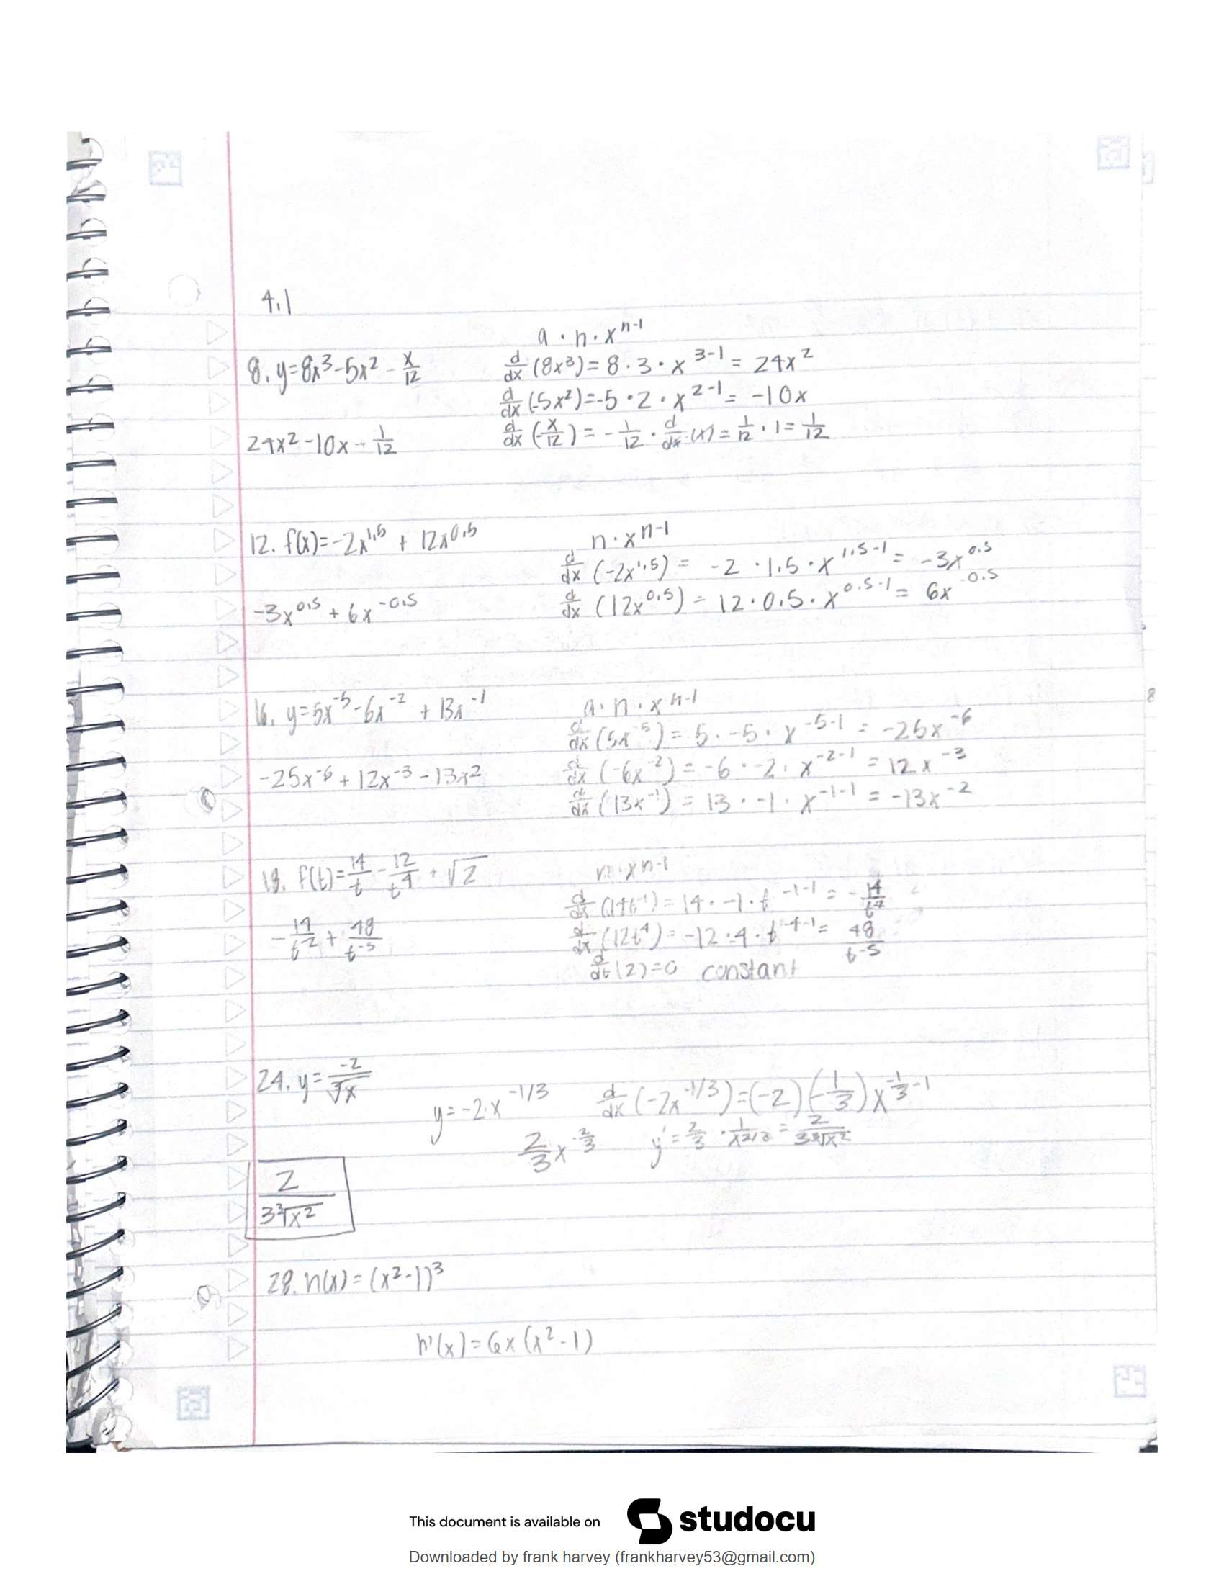 4.1
a · n · x^n-1
8. y=8x^3-5x^2 - x/12
d/dx (8x^3) = 8 · 3 · x^3-1 = 24x^2
d/dx (-5x^2) = -5 · 2 · x^2-1 = -10x
24x^2 - 10x - 1/12
d/dx (-x/12) = - 1/12 · d/dx (x) = 1/12 · 1 = 1/12
12. f(x) = -2x^1.5 + 12x^0.5
n · x^n-1
d/dx (-2x^1.5) = -2 · 1.5 · x^1.5-1 = -3x^0.5
-3x^0.5 + 6x^-0.5
d/dx (12x^0.5) = 12 · 0.5 · x^0.5-1 = 6x^-0.5
16. y = 5x^-5 - 6x^-2 + 13x^-1
a · n · x^n-1
d/dx (5x^-5) = 5 · -5 · x^-5-1 = -25x^-6
-25x^-6 + 12x^-3 - 13x^2
d/dx (-6x^-2) = -6 · -2 · x^-2-1 = 12x^-3
d/dx (13x^-1) = 13 · -1 · x^-1-1 = -13x^-2
18. f(t) = 14/t - 12/t^4 + √2
n · x^n-1
d/dx (14t^-1) = 14 · -1 · t^-1-1 = -14/t^2
-14/t^2 + 48/t^-5
d/dx (12t^4) = -12 · 4 · t^-4-1 = 48/t^-5
d/dt (2) = 0 constant
24. y = -2/∛x
y = -2 · x^-1/3
d/dx (-2x^-1/3) = (-2)(-1/3) x^-1/3-1
2/3 x^-2/3
y' = 2/3 · 1/x^2/3 = 2/3∛x^2
2/3∛x^2
28. h(x) = (x^2-1)^3
h'(x) = 6x(x^2-1)
This document is available on studocu
Downloaded by frank harvey (frankharvey53@gmail.com)